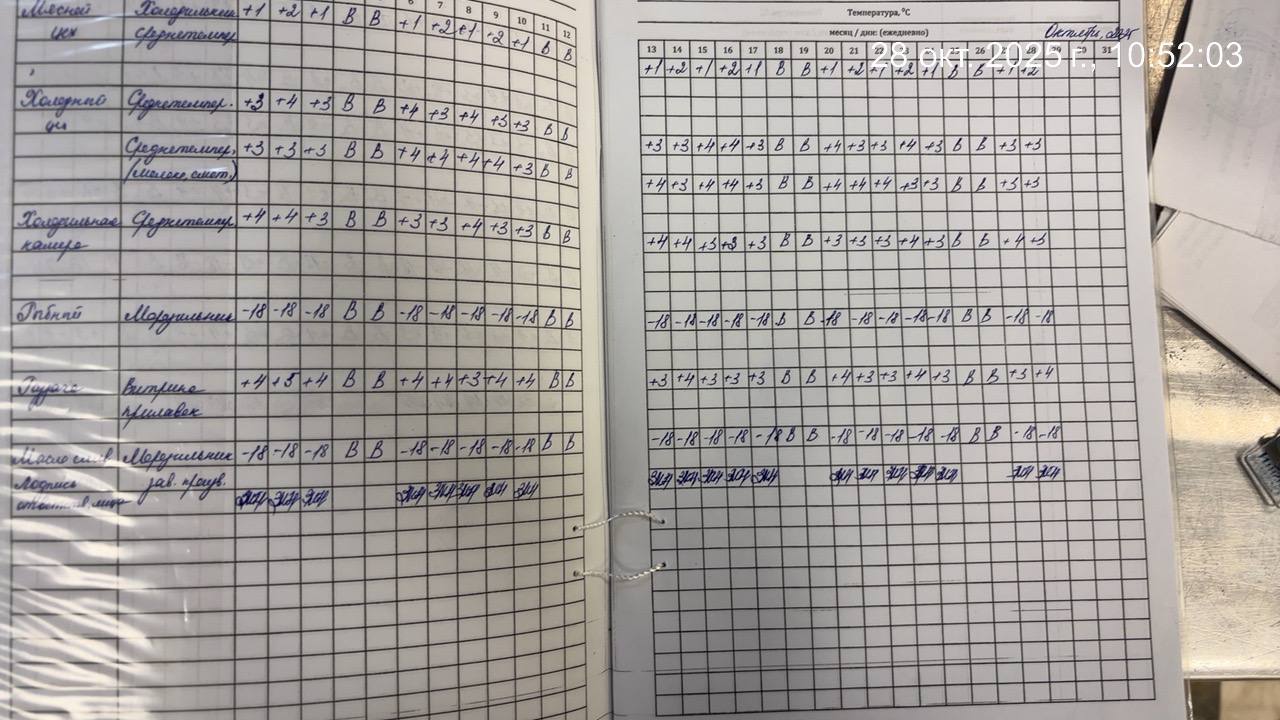 6 7 8 9 10 11 12
Мясной Холодильник +1 +2 +1 В В +1 +2 +1 +2 +1 В В
цех среднетемпер
Холодный Среднетемпер. +3 +4 +3 В В +4 +3 +4 +3 +3 В В
цех
Среднетемпер. +3 +3 +3 В В +4 +4 +4 +4 +3 В В
(молоко, смет.)
Холодильная Среднетемпер. +4 +4 +3 В В +3 +3 +4 +3 +3 В В
камера
Рыбный Морозильник -18 -18 -18 В В -18 -18 -18 -18 -18 В В
Раздача Витрина +4 +5 +4 В В +4 +4 +3 +4 +4 В В
прилавок
Масло слив Морозильник -18 -18 -18 В В -18 -18 -18 -18 -18 В В
Подпись зав. произв.
ответств. лица
Температура, °C
месяц / дни: (ежедневно) Октябрь 2025
28 окт. 2025 г., 10:52:03
13 14 15 16 17 18 19 20 21 22 23 24 25 26 27 28 29 30 31
+1 +2 +1 +2 +1 В В +1 +2 +1 +2 +1 В В +1 +2
+3 +3 +4 +4 +3 В В +4 +3 +3 +4 +3 В В +3 +3
+4 +3 +4 +4 +3 В В +4 +4 +4 +3 +3 В В +3 +3
+4 +4 +3 +3 +3 В В +3 +3 +3 +4 +3 В В +4 +3
-18 -18 -18 -18 -18 В В -18 -18 -18 -18 -18 В В -18 -18
+3 +4 +3 +3 +3 В В +4 +3 +3 +4 +3 В В +3 +4
-18 -18 -18 -18 -18 В В -18 -18 -18 -18 -18 В В -18 -18